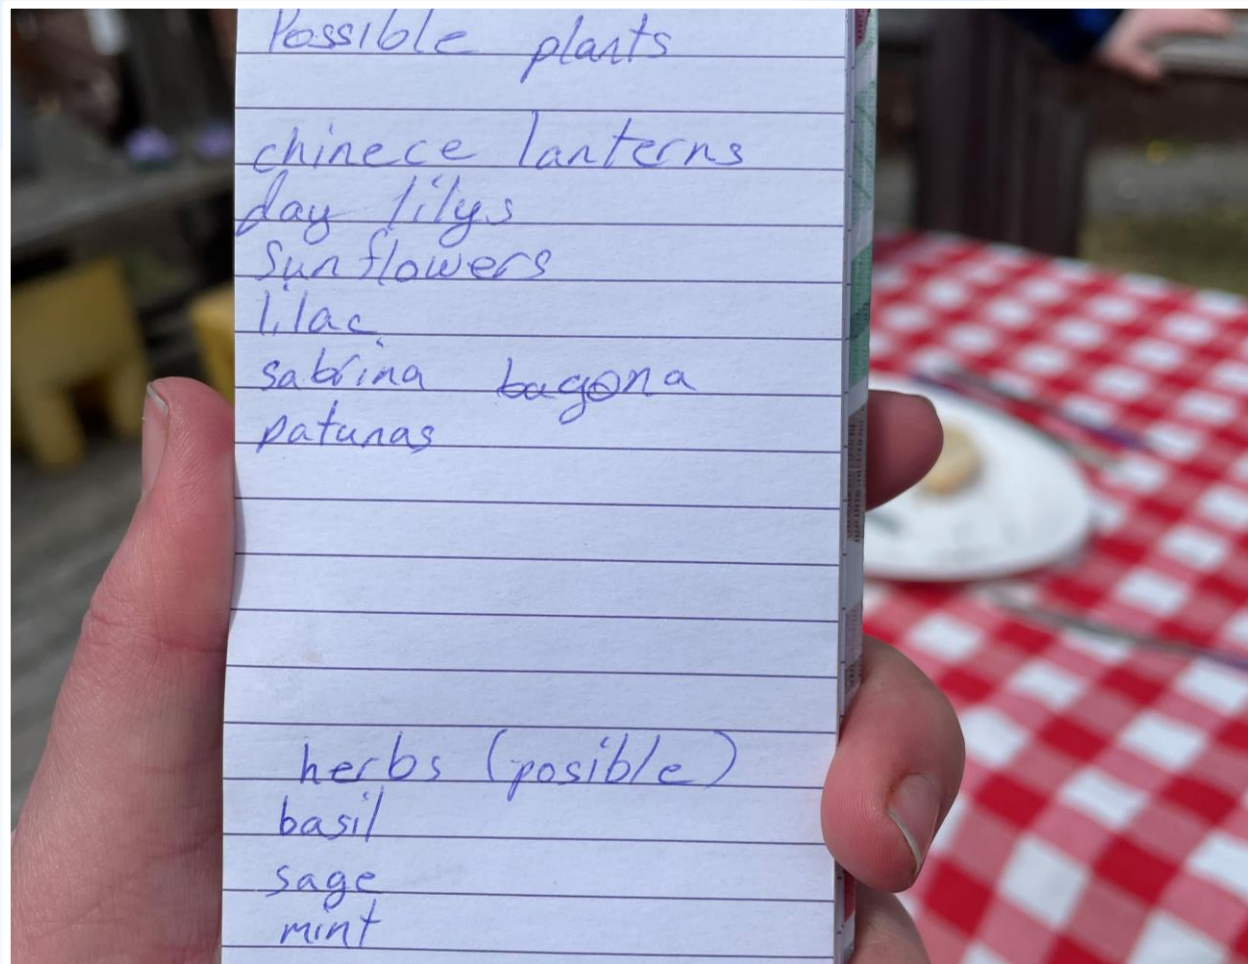 Possible plants
chinece lanterns
day lilys
sunflowers
lilac
sabrina bagona
patunas
herbs (posible)
basil
sage
mint